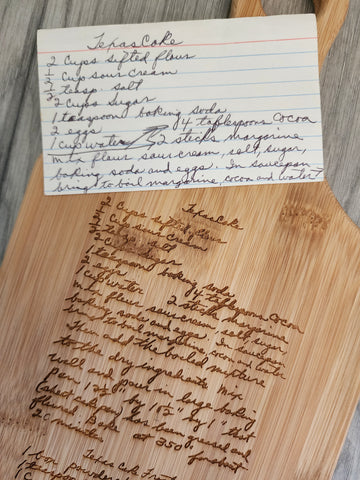 Texas Cake
2 Cups sifted flour
1/2 Cup sour cream
1/2 teasp. salt
2 Cups sugar
1 teaspoon baking soda
2 eggs 4 tablespoons Cocoa
1 cup water 2 sticks margarine
mix flour, sour cream, salt, sugar,
baking soda and eggs. In saucepan
bring to boil margarine, cocoa and water
Texas Cake
2 Cups sifted flour
1/2 Cup sour cream
1/2 teasp. salt
2 Cups sugar
1 teaspoon baking soda
2 eggs 4 tablespoons Cocoa
1 cup water 2 sticks margarine
mix flour, sour cream, salt, sugar,
baking soda and eggs. In saucepan
bring to boil margarine, cocoa and water
Then add the boiled mixture
to the dry ingredients. Mix
well and pour in large baking
pan 12 1/2" by 1" that
(sheet cake pan) has been greased and
floured. Bake at 350°
20 minutes
Texas Cake
1 box powdered
1 teaspoon